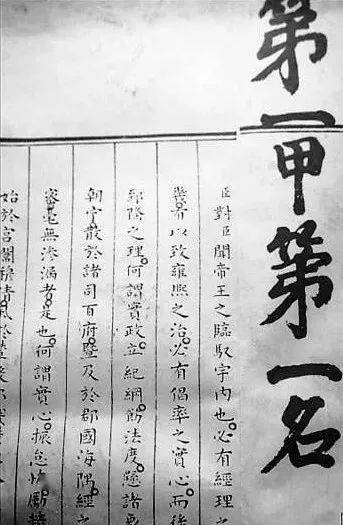 第一甲第一名
臣對臣聞帝王之臨馭宇內也必有經理之
幾有以致雍熙之治必有倡率之實心而後
郅隆之理何謂實政立紀綱飭法度懸諸
朝宁散於諸司百府暨及於郡國海隅經之
密毫無滲漏者是也何謂實心振怠惰勵
始於宮闈穆清風於輦轂